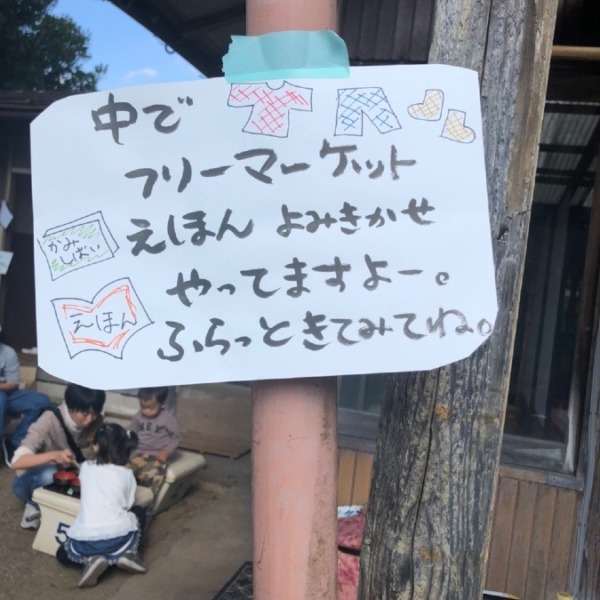 中で
フリーマーケット
かみ
しばい
えほん よみきかせ
やってますよー。
えほん
ふらっときてみてね。
5